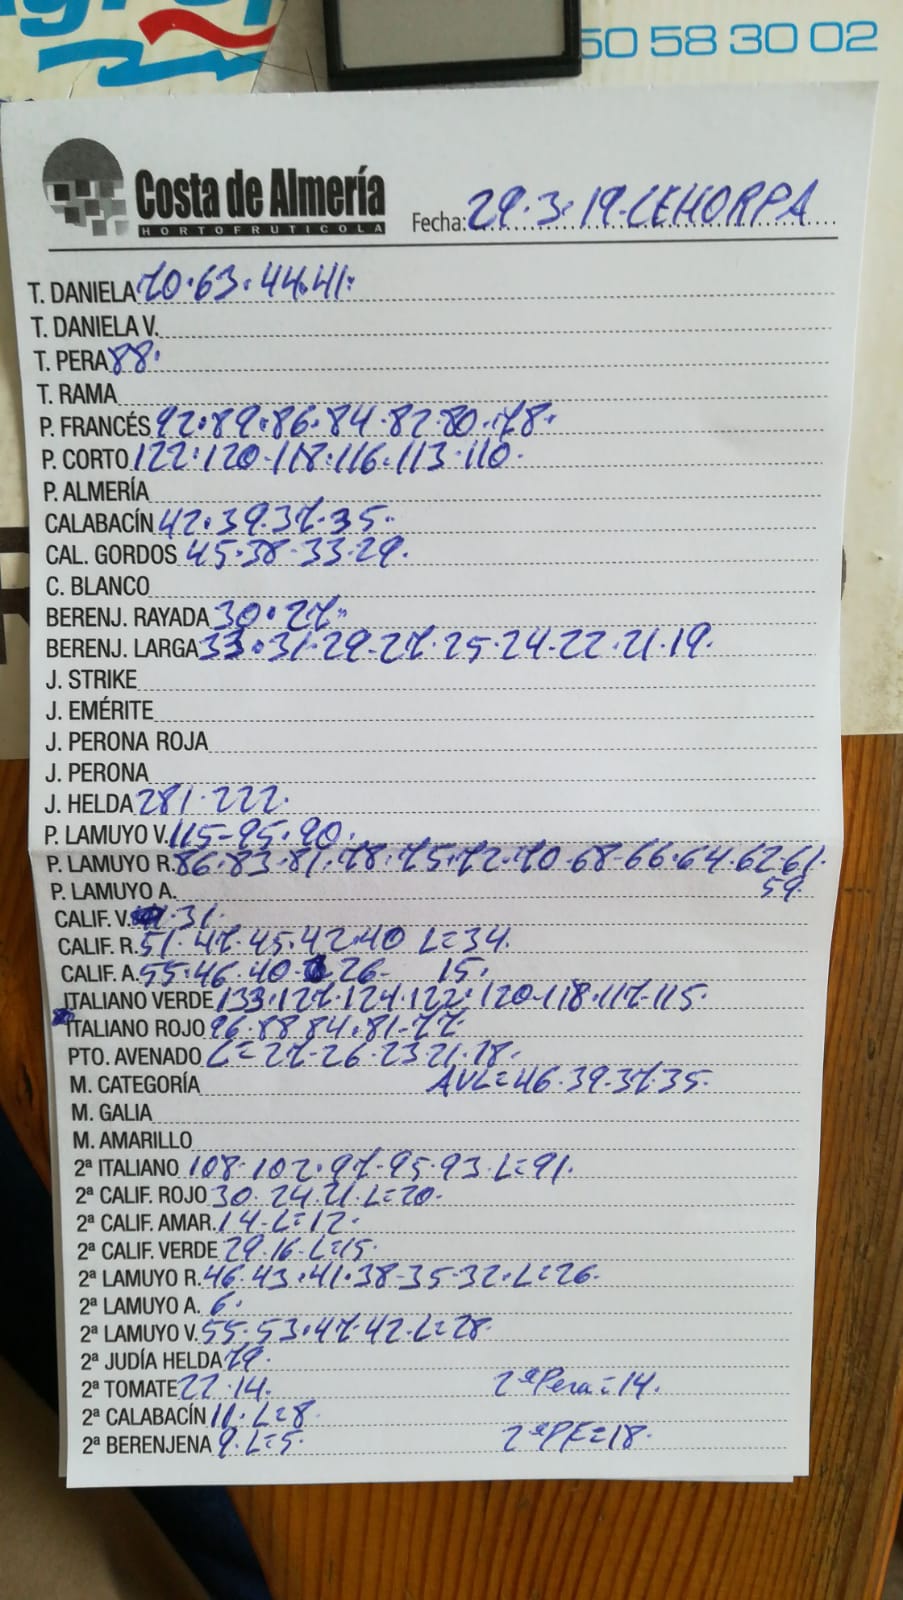 50 58 30 02
Costa de Almería
HORTOFRUTICOLA
Fecha: 29·3·19·CEHORPA
T. DANIELA 70·63·44·41·
T. DANIELA V.
T. PERA 88·
T. RAMA
P. FRANCÉS 92·89·86·84·82·80·78·
P. CORTO 122·120-118·116·113·110·
P. ALMERÍA
CALABACÍN 42·39·37·35·
CAL. GORDOS 45·38·33·29·
C. BLANCO
BERENJ. RAYADA 30·27·
BERENJ. LARGA 33·31·29-27·25·24-22·21·19·
J. STRIKE
J. EMÉRITE
J. PERONA ROJA
J. PERONA
J. HELDA 281·222·
P. LAMUYO V. 115-95·90·
P. LAMUYO R. 86·83·81·78·75·72·70·68-66·64·62·61·
59·
P. LAMUYO A.
CALIF. V. 31·
CALIF. R. 51·47·45·42·40 L=34·
CALIF. A. 55·46·40· 26- 15·
ITALIANO VERDE 133·127·124·122·120·118·117·115·
ITALIANO ROJO 96·88·84·81·77·
PTO. AVENADO L=27-26·23·21·18·
M. CATEGORÍA AVL=46·39·37·35·
M. GALIA
M. AMARILLO
2ª ITALIANO 108-102·97-95·93·L=91·
2ª CALIF. ROJO 30·24·21·L=20·
2ª CALIF. AMAR. 14·L=12·
2ª CALIF. VERDE 29·16·L=15·
2ª LAMUYO R. 46·43·41·38-35·32·L=26·
2ª LAMUYO A. 6·
2ª LAMUYO V. 55·53·47·42·L=28·
2ª JUDÍA HELDA 79·
2ª TOMATE 22·14· 2ªPera=14·
2ª CALABACÍN 11·L=8·
2ª BERENJENA 9·L=5· 2ªPF=18·